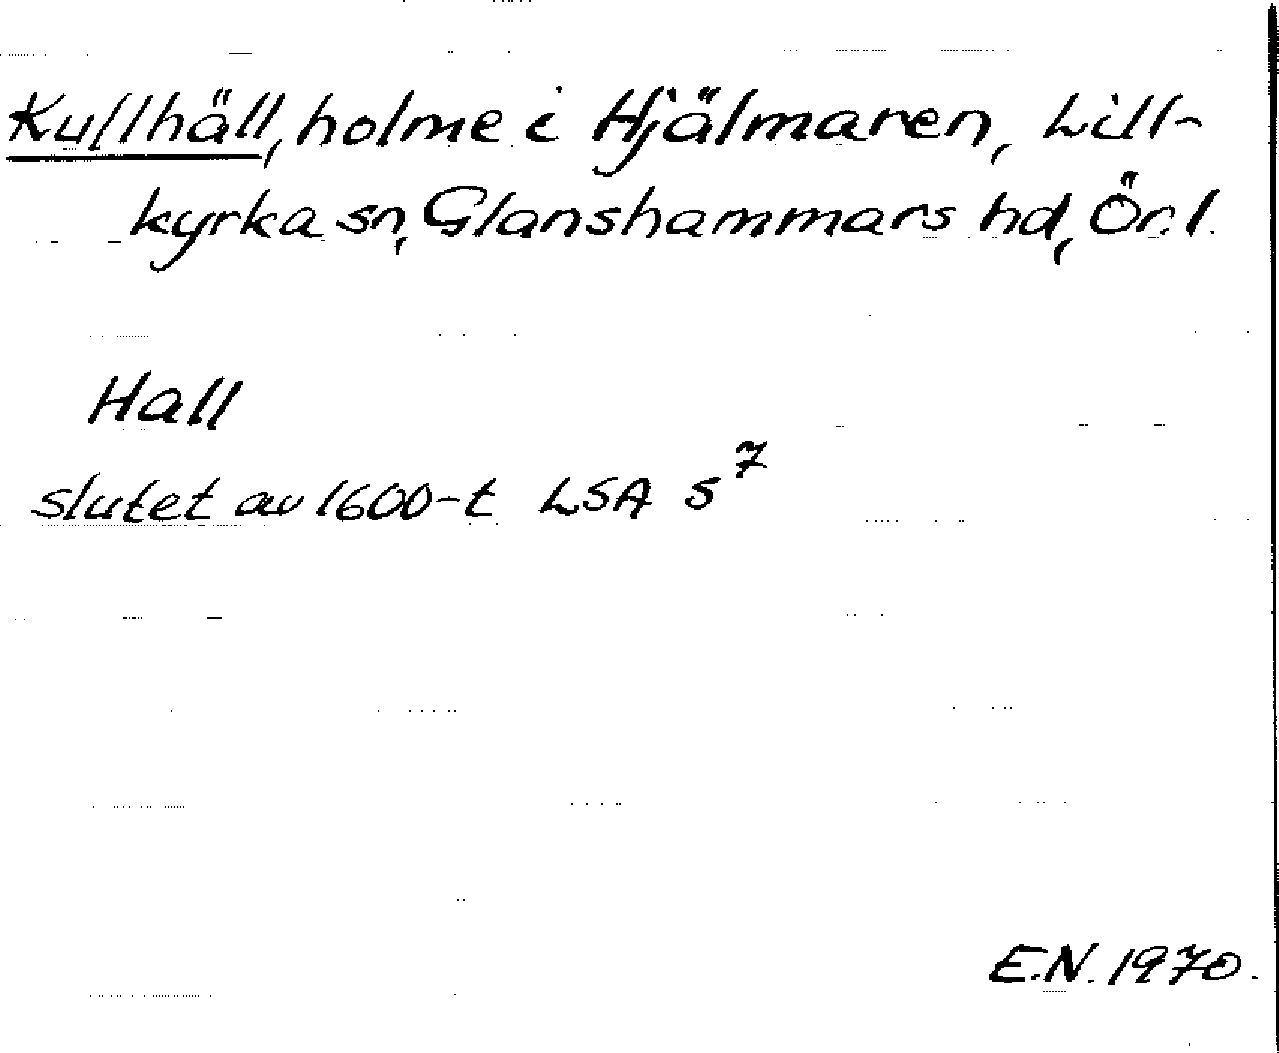 Kullhäll, holme i Hjälmaren, Lill-
kyrka sn, Glanshammars hd, Ör. l.
Hall
slutet av 1600-t LSA S⁷
E.N. 1970.